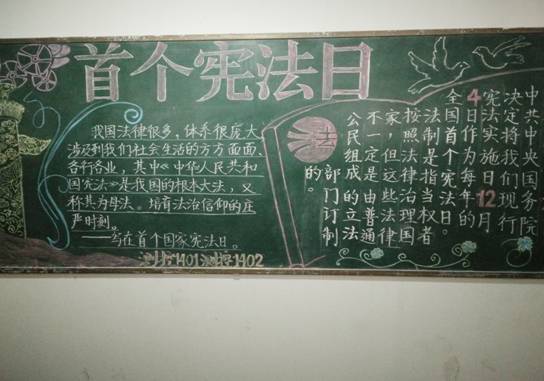 首个宪法日
我国法律很多，体系很庞大
涉及到我们社会生活的方方面面、
各行各业，其中《中华人民共和
国宪法》是我国的根本大法，又
称其为母法。培育法治信仰的庄
严时刻。
——写在首个国家宪法日。
1401
1402
法
中共中央国务院
决定将我们现行
宪法实施日12月
4日作为每年的
全国首个宪法日。
法制是指当权者
按照法律治理国
家，但这些法律
不一定是由普通
公民组成的立法
部门订制
的。